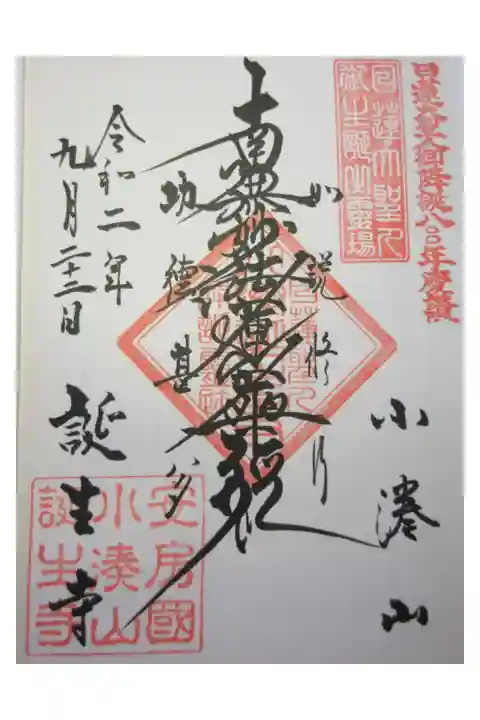 日蓮大聖人御降誕八〇〇年慶讃
日蓮大聖人
御生誕霊場
小湊山
如説修行
南無妙法蓮華経
功徳甚多
令和二年
九月二十二日
誕生寺
安房國
小湊山
誕生寺